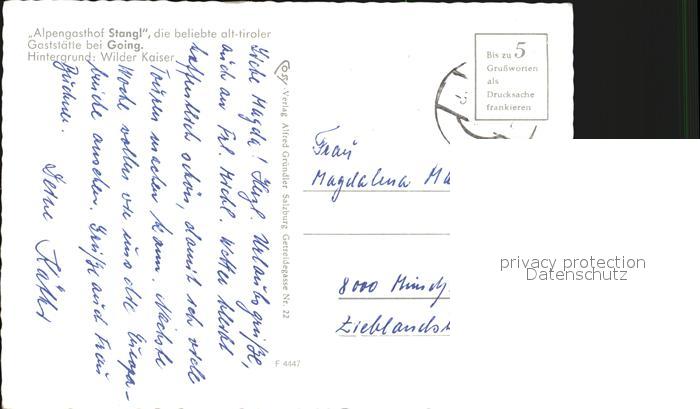 „Alpengasthof Stangl", die beliebte alt-tiroler
Gaststätte bei Going.
Hintergrund: Wilder Kaiser
Liebe Magda! Herzl. Urlaubsgrüße,
auch an Frl. Michl. Wetter bleibt
hoffentlich schön, damit ich viele
Touren machen kann. Nächste
Woche wollen wir uns die Europa-
brücke ansehen. Grüße auch Frau
Büchner.
Deine Käthe
Cosy-Verlag Alfred Gründler Salzburg Getreidegasse Nr. 22
F 4447
Bis zu 5
Grußworten
als
Drucksache
frankieren
Frau
Magdalena Ma
8000 Münch
Zieblands
privacy protection
Datenschutz